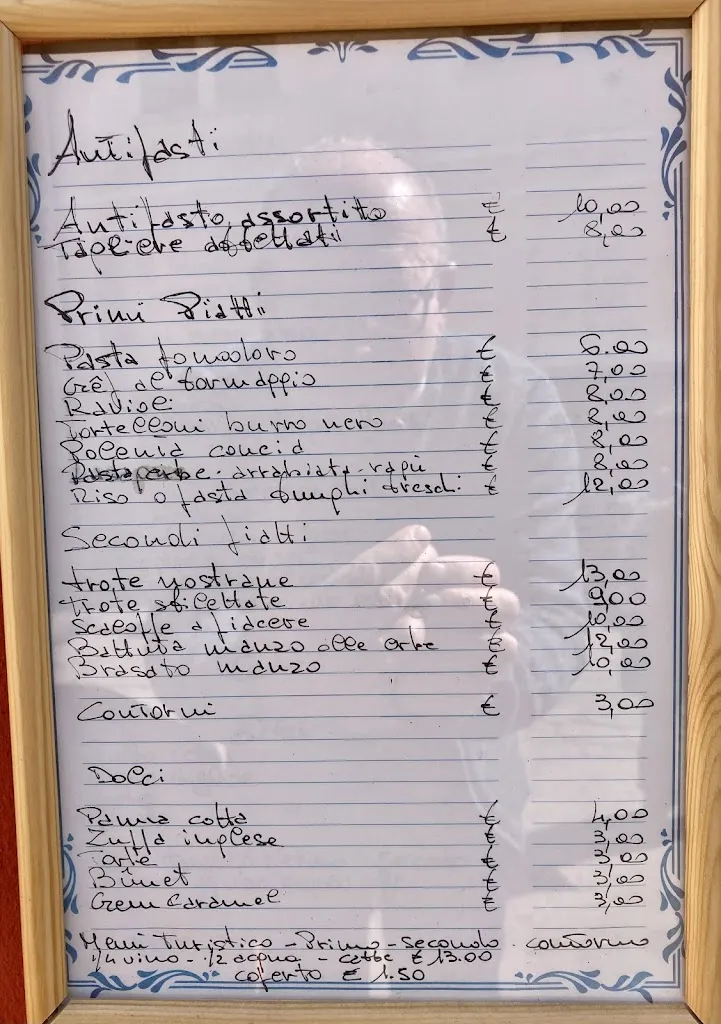 Antipasti
Antipasto assortito € 10,00
Tagliere affettati € 8,00
Primi Piatti
Pasta pomodoro € 6.00
al formaggio € 7,00
Ravioli € 8,00
Tortelloni burro nero € 8,00
Polenta concia € 8,00
Pasta erbe - arrabiata - ragù € 8,00
Riso o pasta funghi freschi € 12,00
Secondi piatti
trote nostrane € 13,00
trote sfilettate € 9,00
Scaloppe a piacere € 10,00
Battuta manzo alle erbe € 12,00
Brasato manzo € 10,00
Contorni € 3,00
Dolci
Panna cotta € 4,00
Zuppa inglese € 3,00
Torte € 3,00
Bûnet € 3,00
Crem Caramel € 3,00
Menù Turistico - Primo - secondo - contorno
1/4 vino - 1/2 acqua - caffe € 13.00
coperto € 1.50